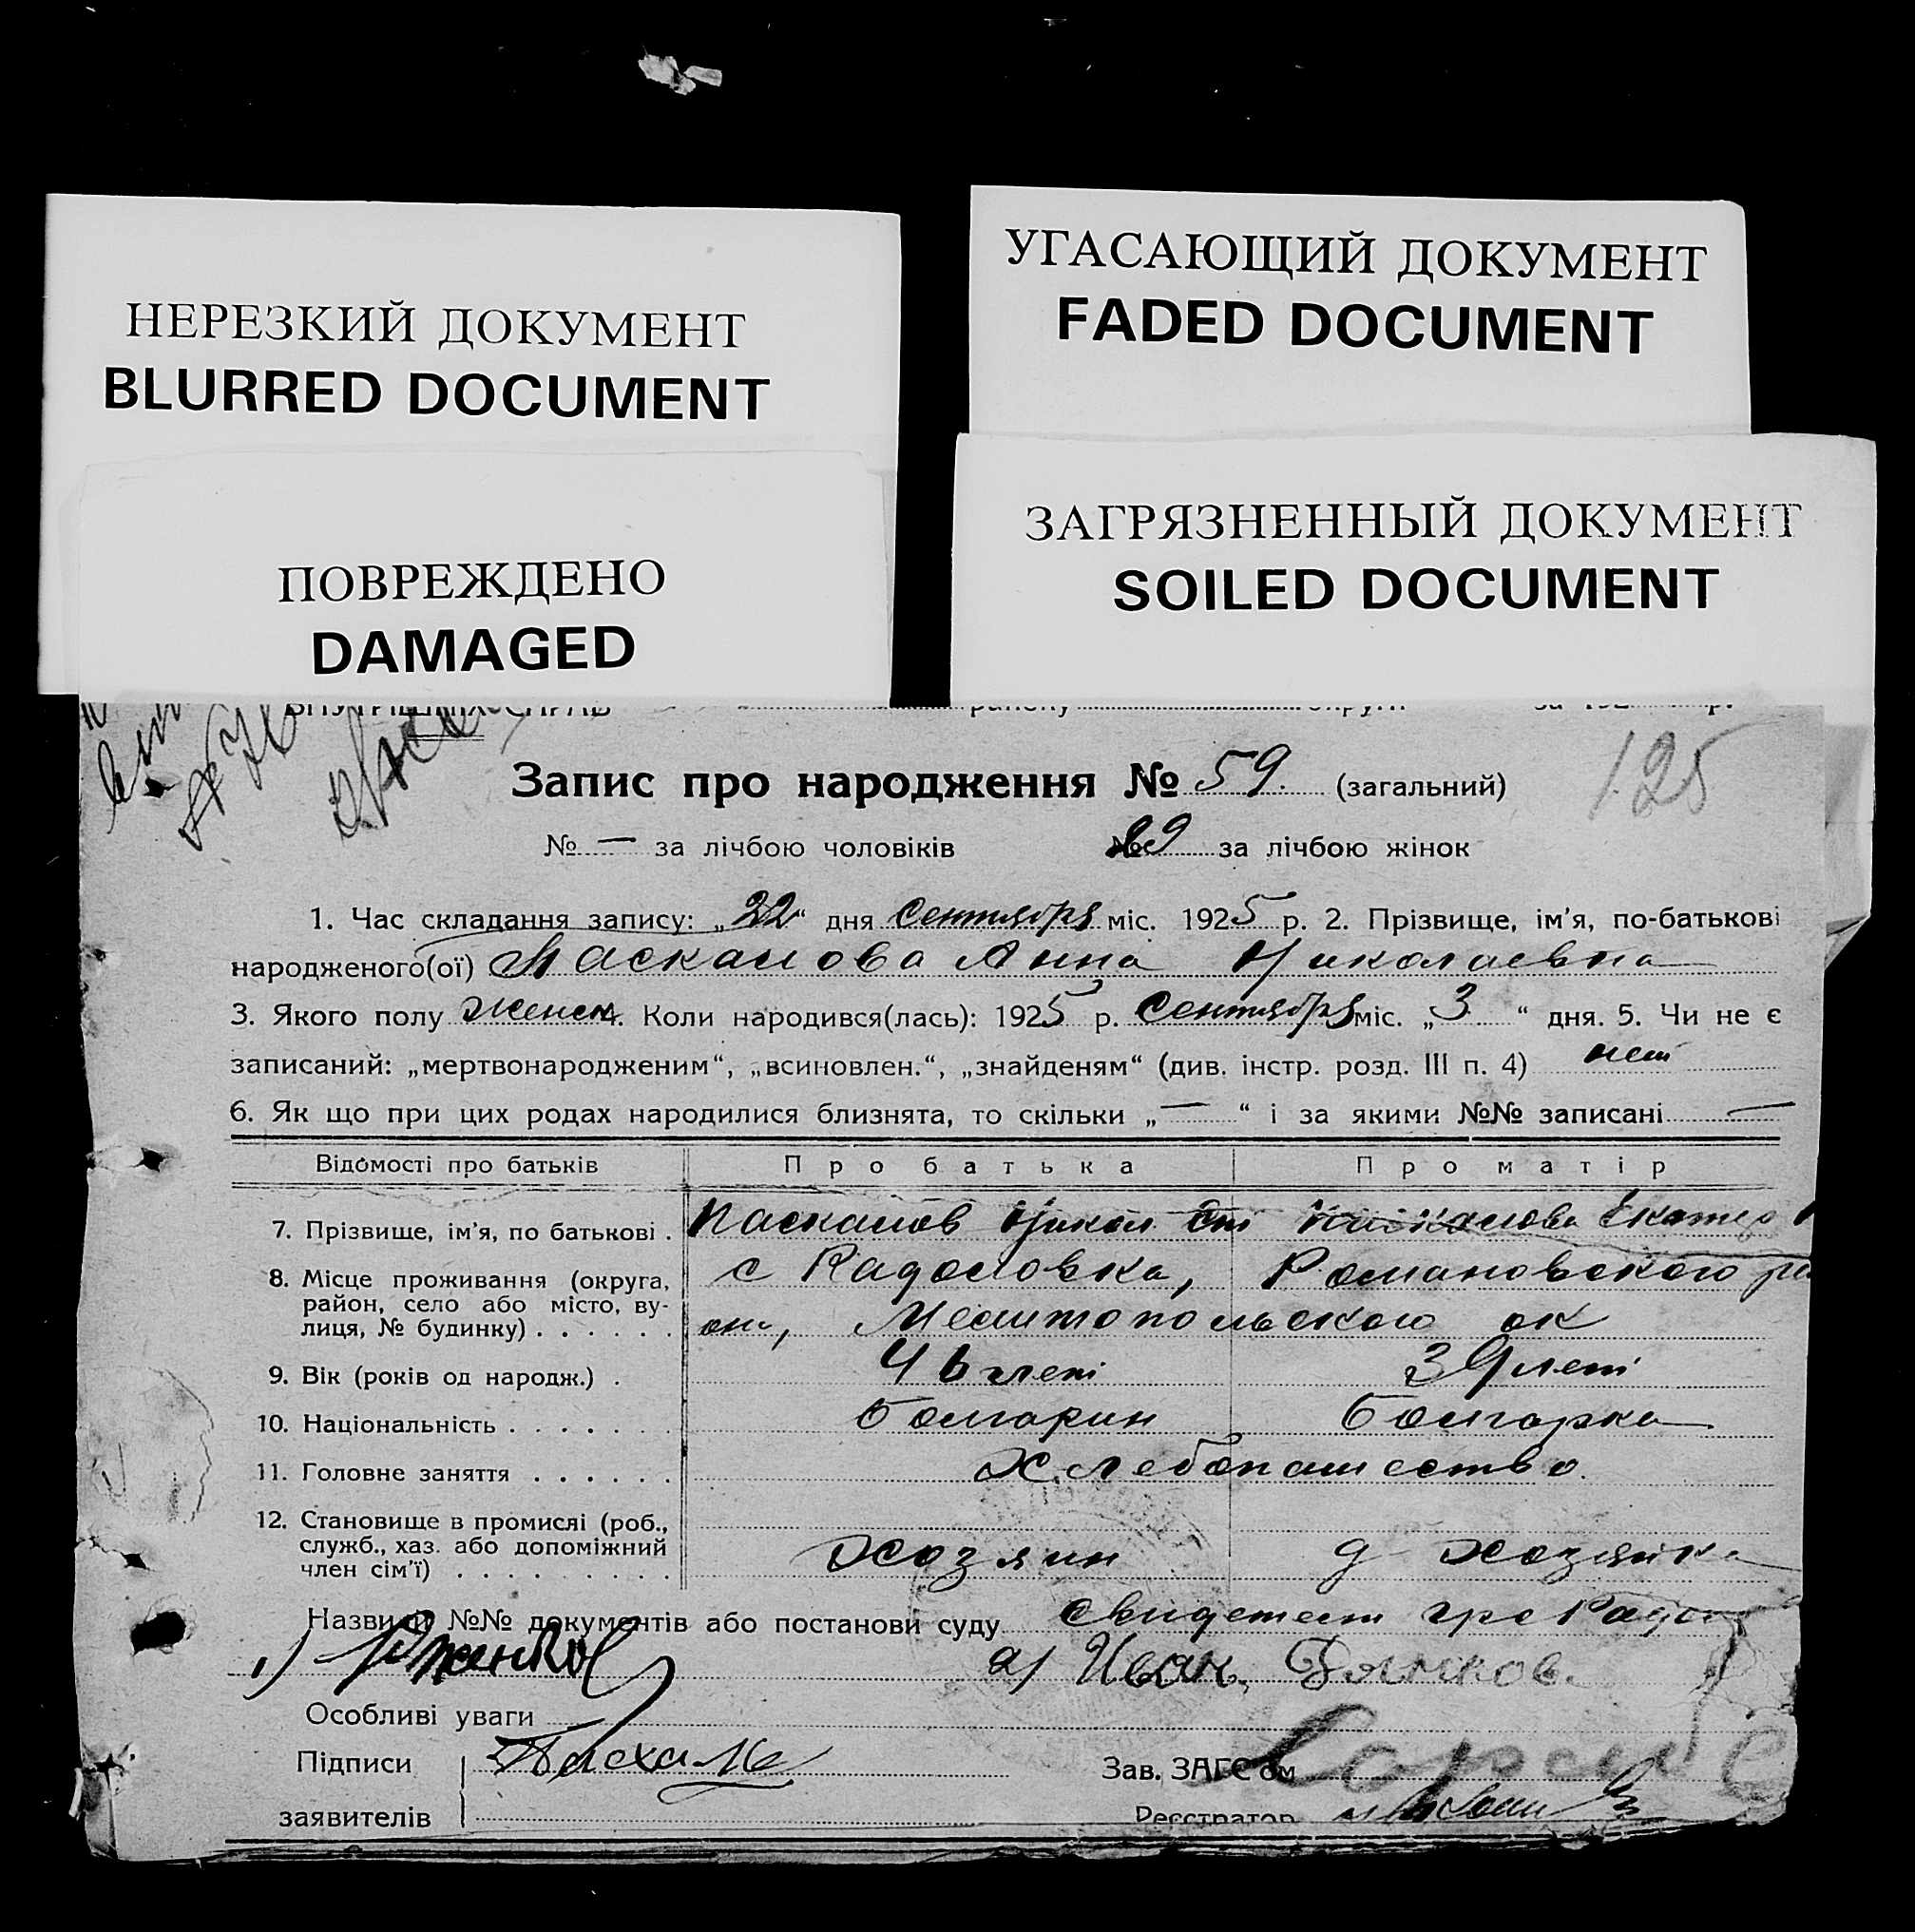 УГАСАЮЩИЙ ДОКУМЕНТ
FADED DOCUMENT
НЕРЕЗКИЙ ДОКУМЕНТ
BLURRED DOCUMENT
ЗАГРЯЗНЕННЫЙ ДОКУМЕНТ
SOILED DOCUMENT
ПОВРЕЖДЕНО
DAMAGED
Запис про народження № 59. (загальний) 125
№ — за лічбою чоловіків № 29 за лічбою жінок
1. Час складання запису: „22“ дня Сентября міс. 1925 р. 2. Прізвище, ім’я, по-батькові
народженого(ої) Паскалова Анна Николаевна
3. Якого полу женск 4. Коли народився(лась): 1925 р. Сентября міс. „3“ дня. 5. Чи не є
записаний: „мертвонародженим“, „всиновлен.“, „знайденям“ (див. інстр. розд. III п. 4) нет
6. Як що при цих родах народилися близнята, то скільки „—“ і за якими №№ записані —
Відомості про батьків Про батька Про матір
7. Прізвище, ім’я, по батькові . Паскалов Никол Ст Паскалова Екатер
8. Місце проживання (округа, с Радоловка, Романовского
район, село або місто, ву-
лиця, № будинку) . . . . . . Мелитопольского ок
9. Вік (років од народж.) . 46 лет 39 лет
10. Національність . . . . . . . болгарин болгарка
11. Головне заняття . . . . . . Хлебопашество
12. Становище в промислі (роб.,
служб., хаз. або допоміжний Хозяин д хозяйка
член сім’ї) . . . . . . . . .
Назви й №№ документів або постанови суду свидетели гре Радо
1) 2) Иван
Особливі уваги
Підписи Зав. ЗАГС’ом
заявителів Реєстратор